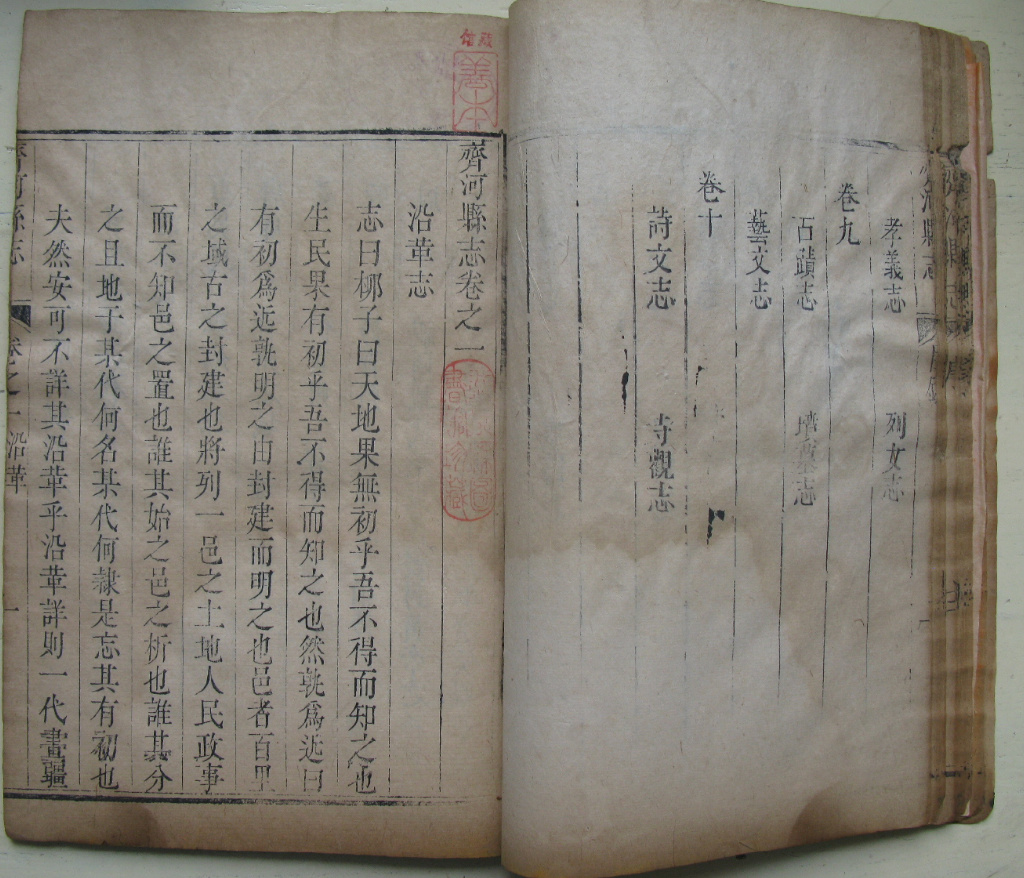 孝義志 列女志
卷九
古蹟志 墳墓志
藝文志
卷十
詩文志 寺觀志
善本
齊河縣志卷之一
沿革志
志曰栁子曰天地果無初乎吾不得而知之也
生民果有初乎吾不得而知之也然孰爲近曰
有初爲近孰明之由封建而明之也邑者百里
之域古之封建也將列一邑之土地人民政事
而不知邑之置也誰其始之邑之析也誰其分
之且地于某代何名某代何隸是忘其有初也
夫然安可不詳其沿革乎沿革詳則一代書疆
齊河縣志 卷之一 沿革 一